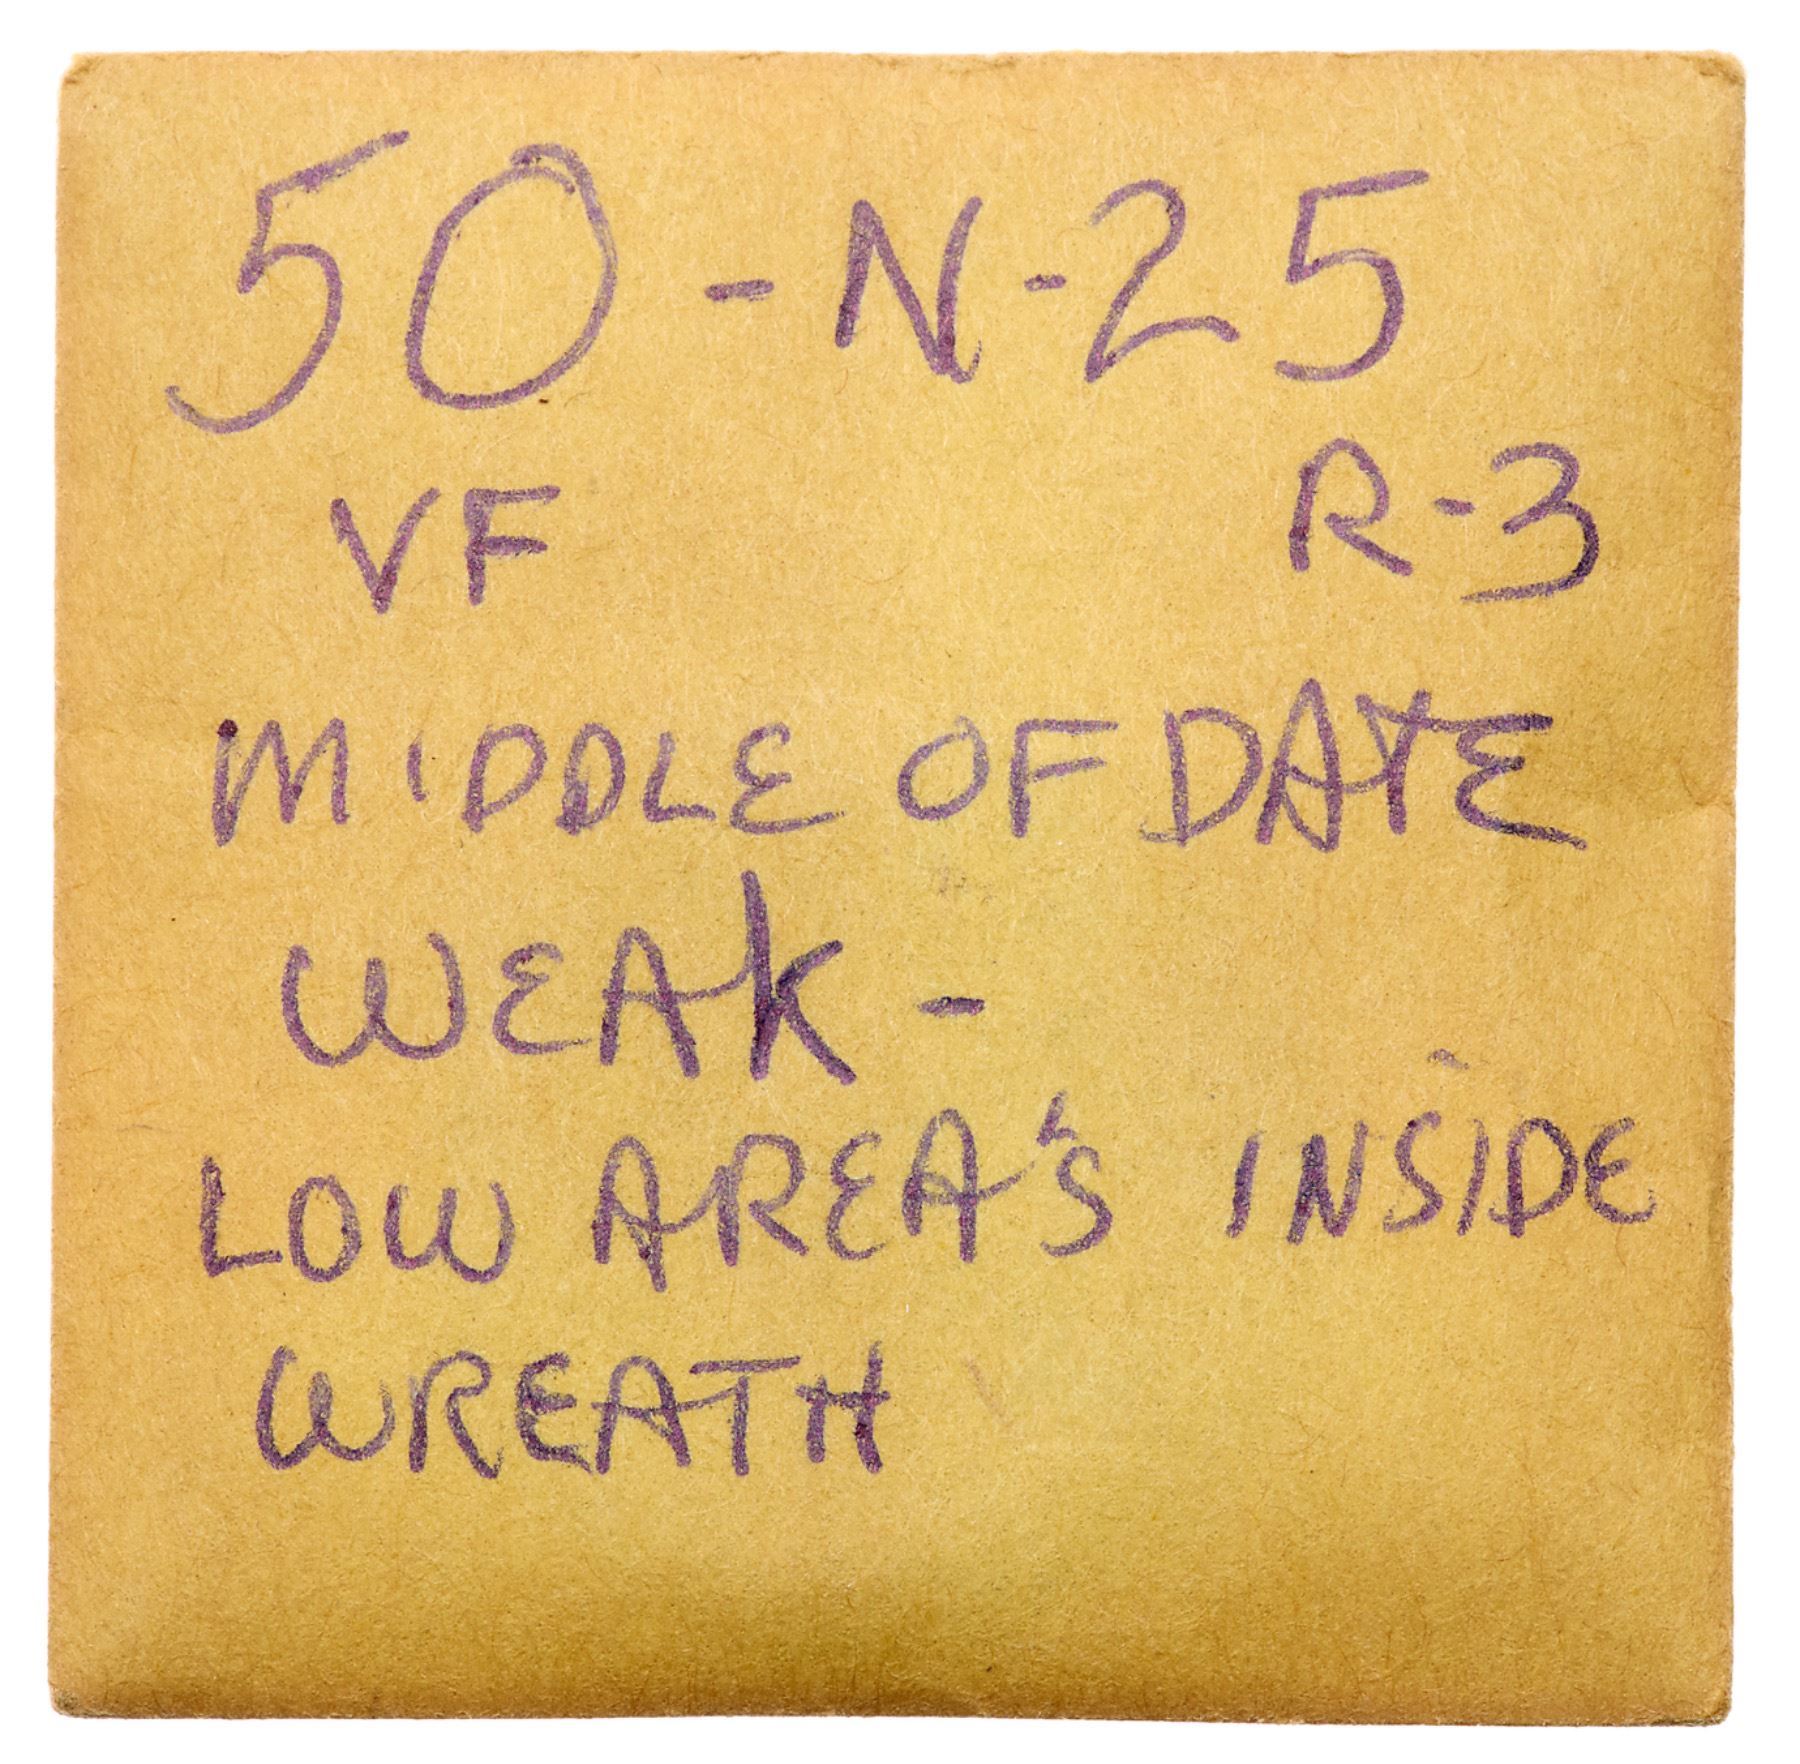 50-N-25
VF R-3
MIDDLE OF DATE
WEAK -
LOW AREA'S INSIDE
WREATH